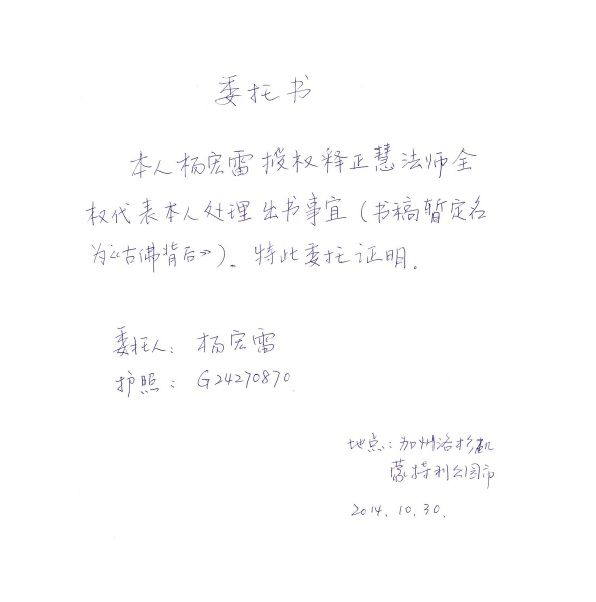 委托书
本人杨宏雷授权释正慧法师全
权代表本人处理出书事宜（书稿暂定名
为《古佛背后》）。特此委托证明。
委托人：杨宏雷
护照：G24270870
地点：加州洛杉矶
蒙特利公园市
2014.10.30.